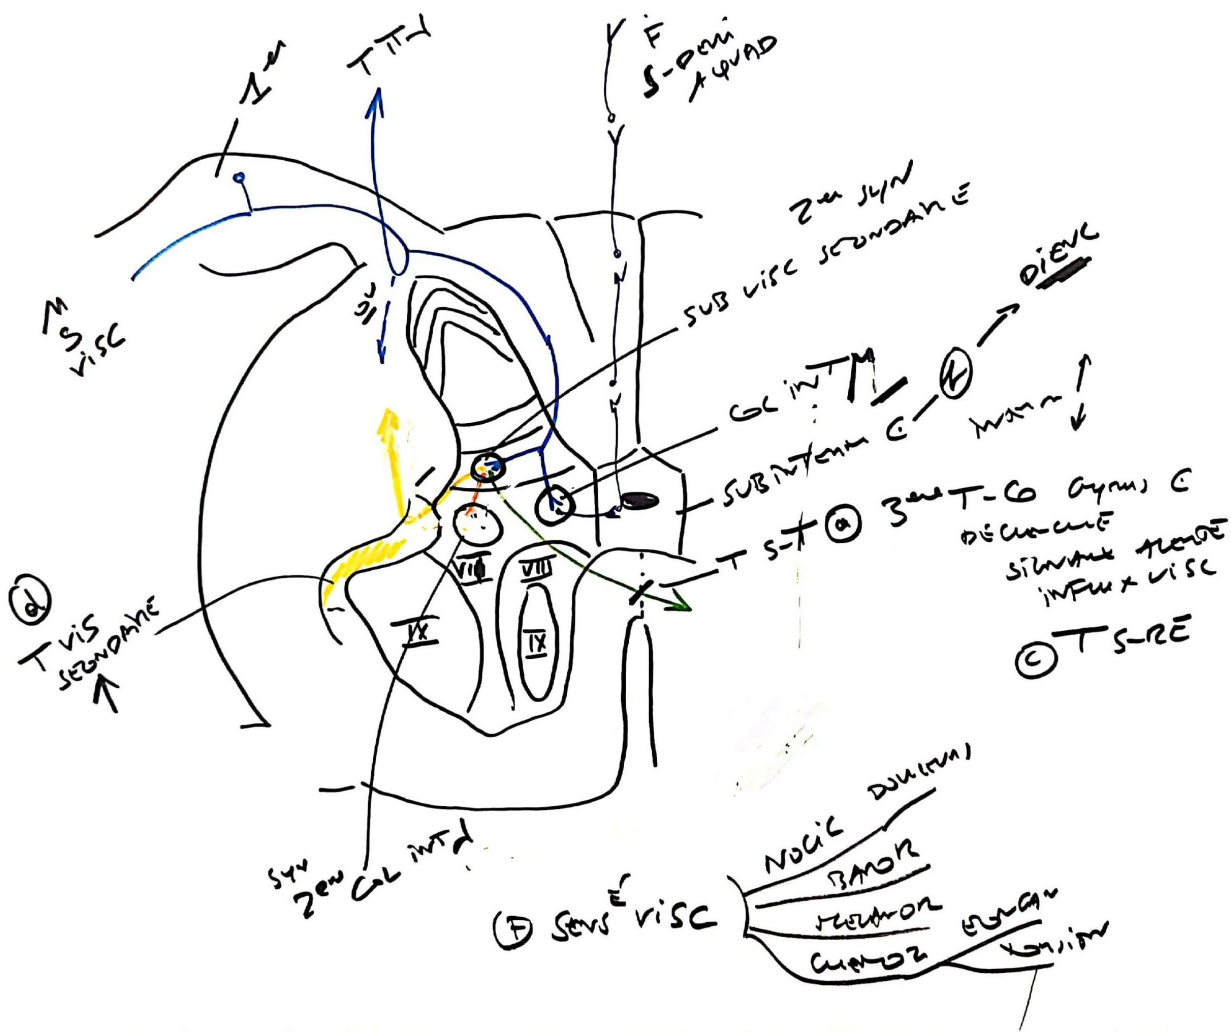 1er
T πd
F
S-Demi
AQUAD
2em SYN
SUB VISC SECONDAIRE
VISC
COL INT M
SUB INTERM C
b
DIENC
T S-T a 3eme T-Co Gyrus C
SIGNAUX ALERTE
INFLUX VISC
c T S-RE
d
T VIS
SECONDAIRE
VIII
VIII
IX
IX
SYN
2em COL INT d
F SENS E VISC
NOCIC DOULEURS
BAROR
MECANOR
CHEMOR